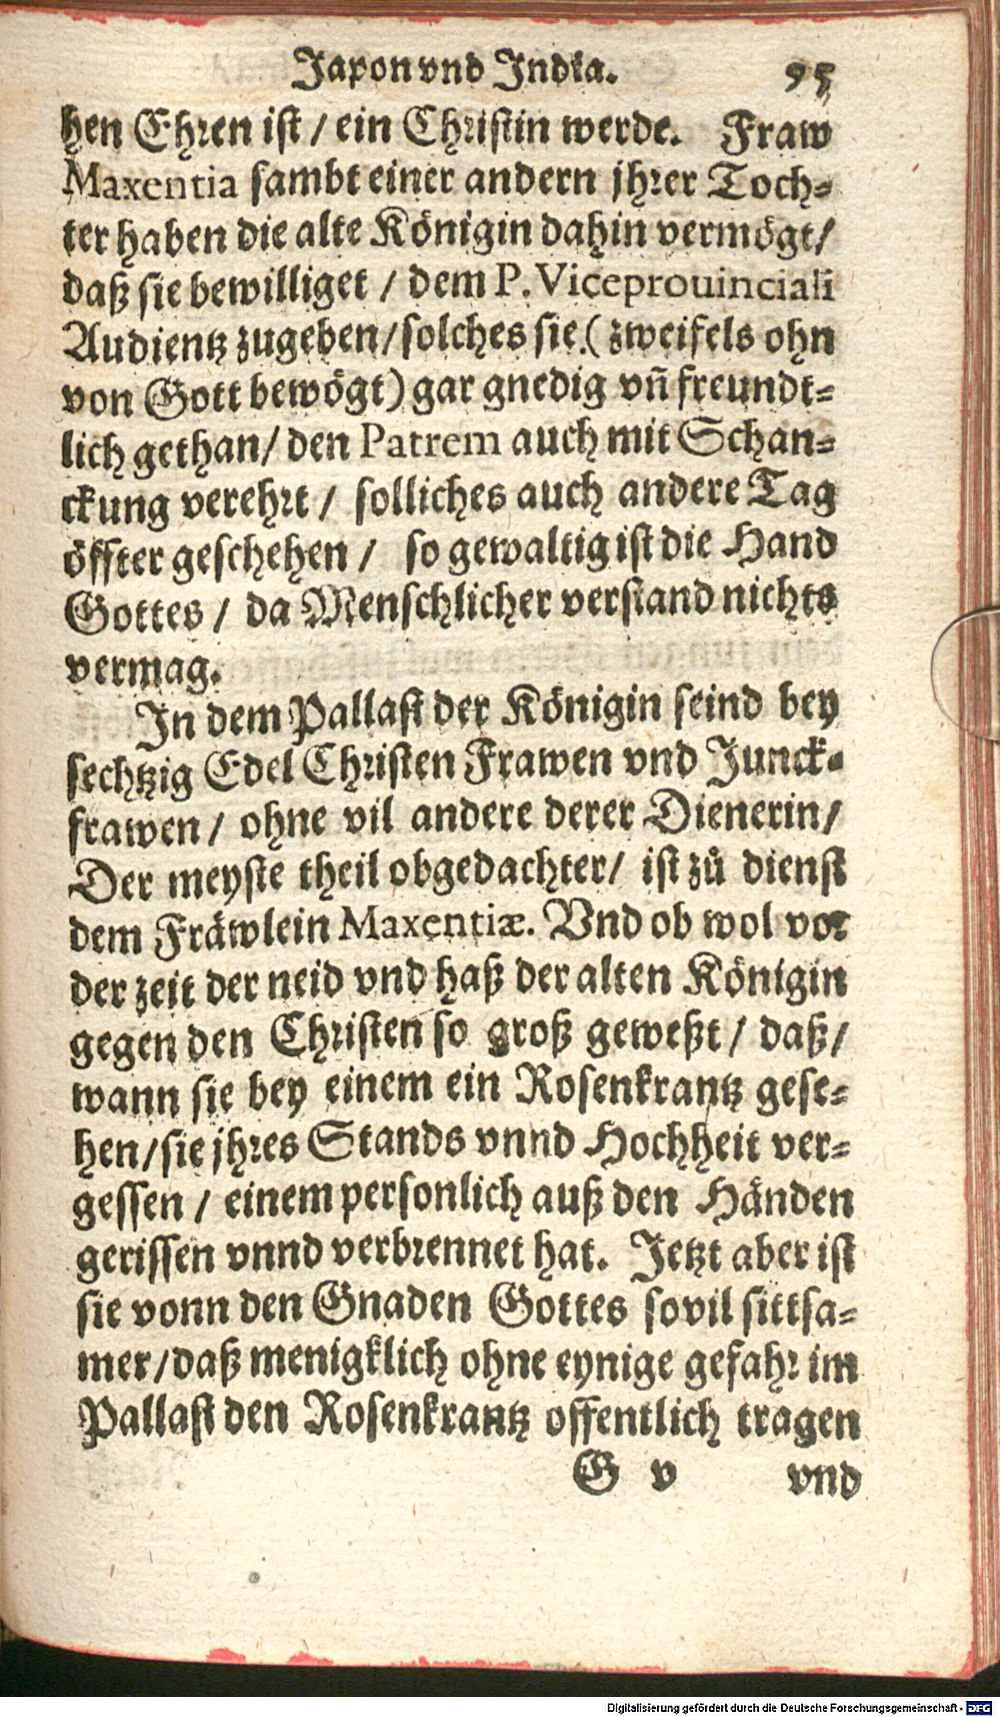 Japon vnd India. 95
hen Ehren ist / ein Christin werde. Fraw
Maxentia sambt einer andern jhrer Toch-
ter haben die alte Königin dahin vermögt /
daß sie bewilliget / dem P. Viceprouinciali
Audientz zugeben / solches sie ( zweifels ohn
von Gott bewögt) gar gnedig vñ freundt-
lich gethan / den Patrem auch mit Schan-
ckung verehrt / solliches auch andere Tag
öffter geschehen / so gewaltig ist die Hand
Gottes / da Menschlicher verstand nichts
vermag.
In dem Pallast der Königin seind bey
sechtzig Edel Christen Frawen vnd Junck-
frawen / ohne vil andere derer Dienerin /
Der meyste theil obgedachter / ist zů dienst
dem Fräwlein Maxentiæ. Vnd ob wol vor
der zeit der neid vnd haß der alten Königin
gegen den Christen so groß geweßt / daß /
wann sie bey einem ein Rosenkrantz gese-
hen / sie jhres Stands vnnd Hochheit ver-
gessen / einem personlich auß den Händen
gerissen vnnd verbrennet hat. Jetzt aber ist
sie vonn den Gnaden Gottes sovil sittsa-
mer / daß menigklich ohne eynige gefahr im
Pallast den Rosenkrantz offentlich tragen
G v vnd
Digitalisierung gefördert durch die Deutsche Forschungsgemeinschaft - DFG